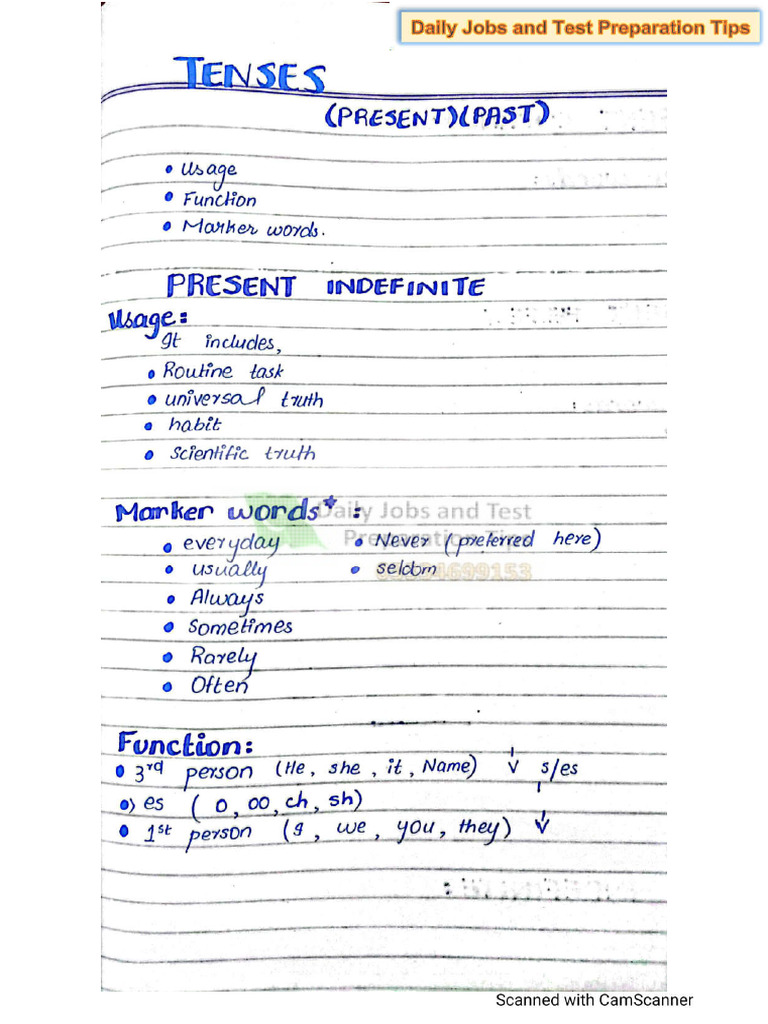 Daily Jobs and Test Preparation Tips
TENSES
(PRESENT)(PAST)
• Usage
• Function
• Marker words.
PRESENT INDEFINITE
Usage:
It includes,
• Routine task
• universal truth
• habit
• scientific truth
Marker words* :
Daily Jobs and Test
Preparation Tips
• everyday • Never (preferred here)
• usually • seldom
• Always
• Sometimes
• Rarely
• Often
Function:
• 3rd person (He, she, it, Name) V s/es
•) es ( o, oo, ch, sh)
• 1st person (I, we, you, they) V
Scanned with CamScanner